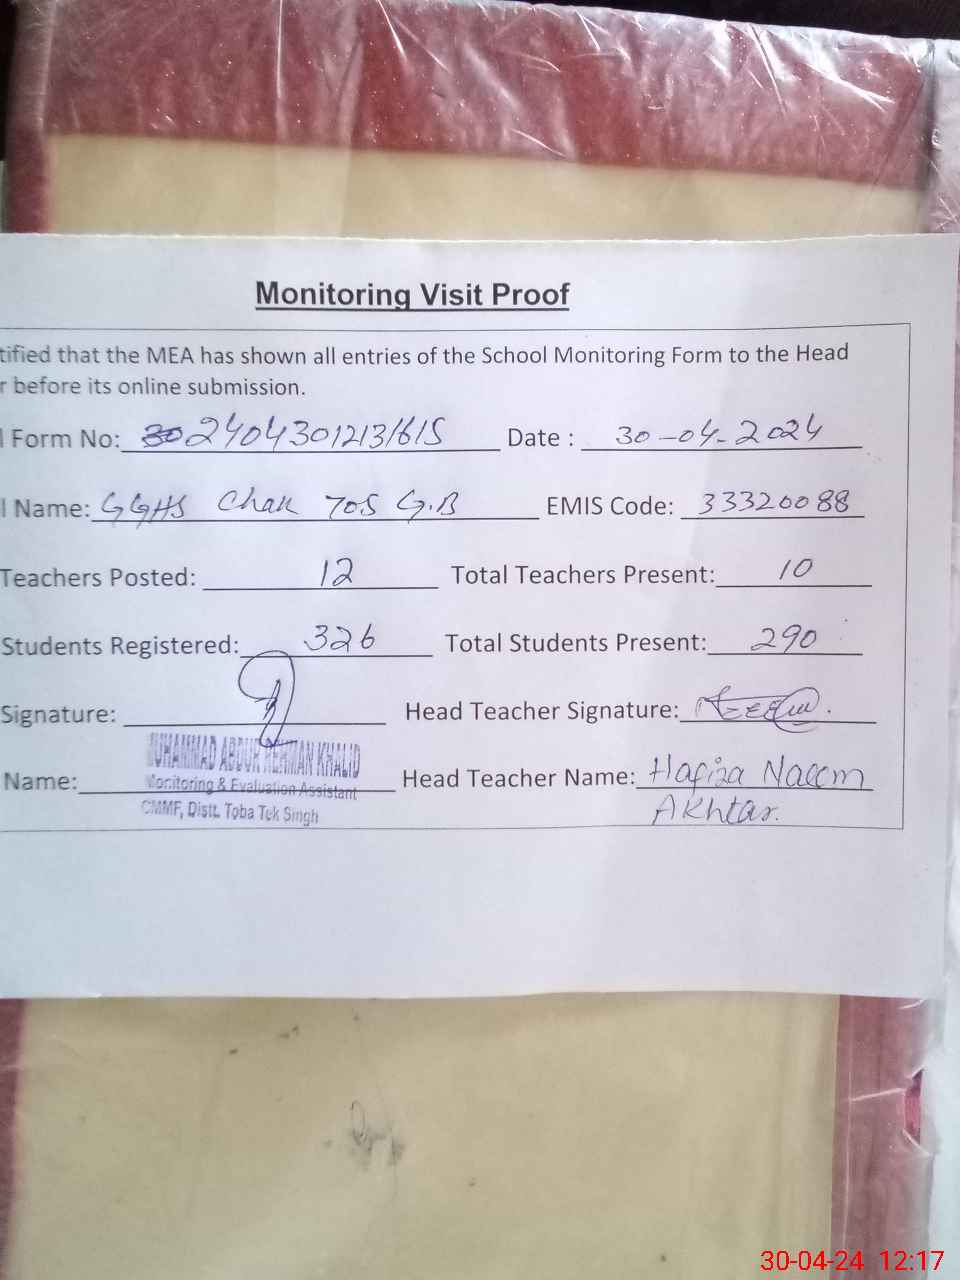 Monitoring Visit Proof
tified that the MEA has shown all entries of the School Monitoring Form to the Head
r before its online submission.
l Form No: 24043012131615 Date : 30-04-2024
l Name: GGHS Chak 705 G.B EMIS Code: 33320088
Teachers Posted: 12 Total Teachers Present: 10
Students Registered: 326 Total Students Present: 290
Signature: Head Teacher Signature:
Name: MUHAMMAD ABDUR REHMAN KHALID Head Teacher Name: Hafiza Naeem
Monitoring & Evaluation Assistant Akhtar.
CMMF, Distt. Toba Tek Singh
30-04-24 12:17